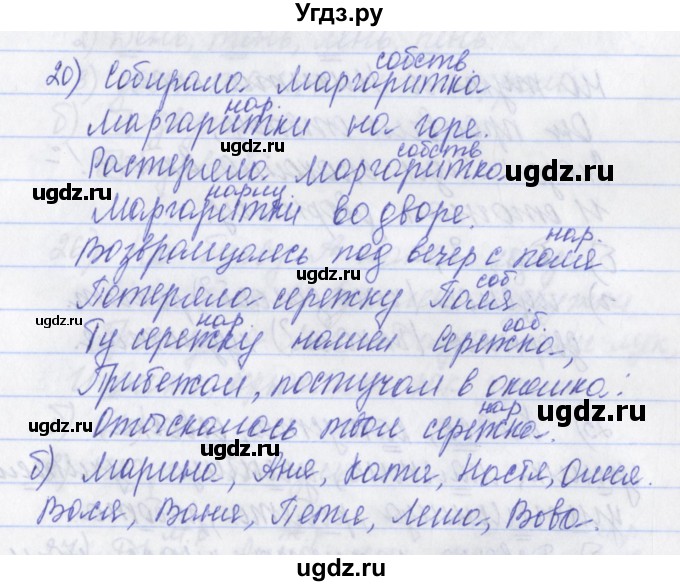 Угдз.ру
20) Собирала Маргаритка
собств.
Маргаритки на горе.
нар.
ugdz.ru
ugdz.ru
Растеряла Маргаритка
собств
ugdz.ru
ugdz.ru
Маргаритки во дворе.
нариц.
Возвращалась под вечер с поля
нар.
ugdz.ru
ugdz.ru
Потеряла сережку Поля.
соб
ugdz.ru
Ту сережку нашел Сережка,
нар.
соб.
ugdz.ru
Прибежал, постучал в окошко:
ugdz.ru
ugdz.ru
Отыскалась твоя сережка.
нар
б) Марина, Аня, Катя, Настя, Олеся.
ugdz.ru
ugdz.ru
Валя, Ваня, Петя, Леша, Вова.
ugdz.ru
ugdz.ru
ugdz.ru
Угдз.ру